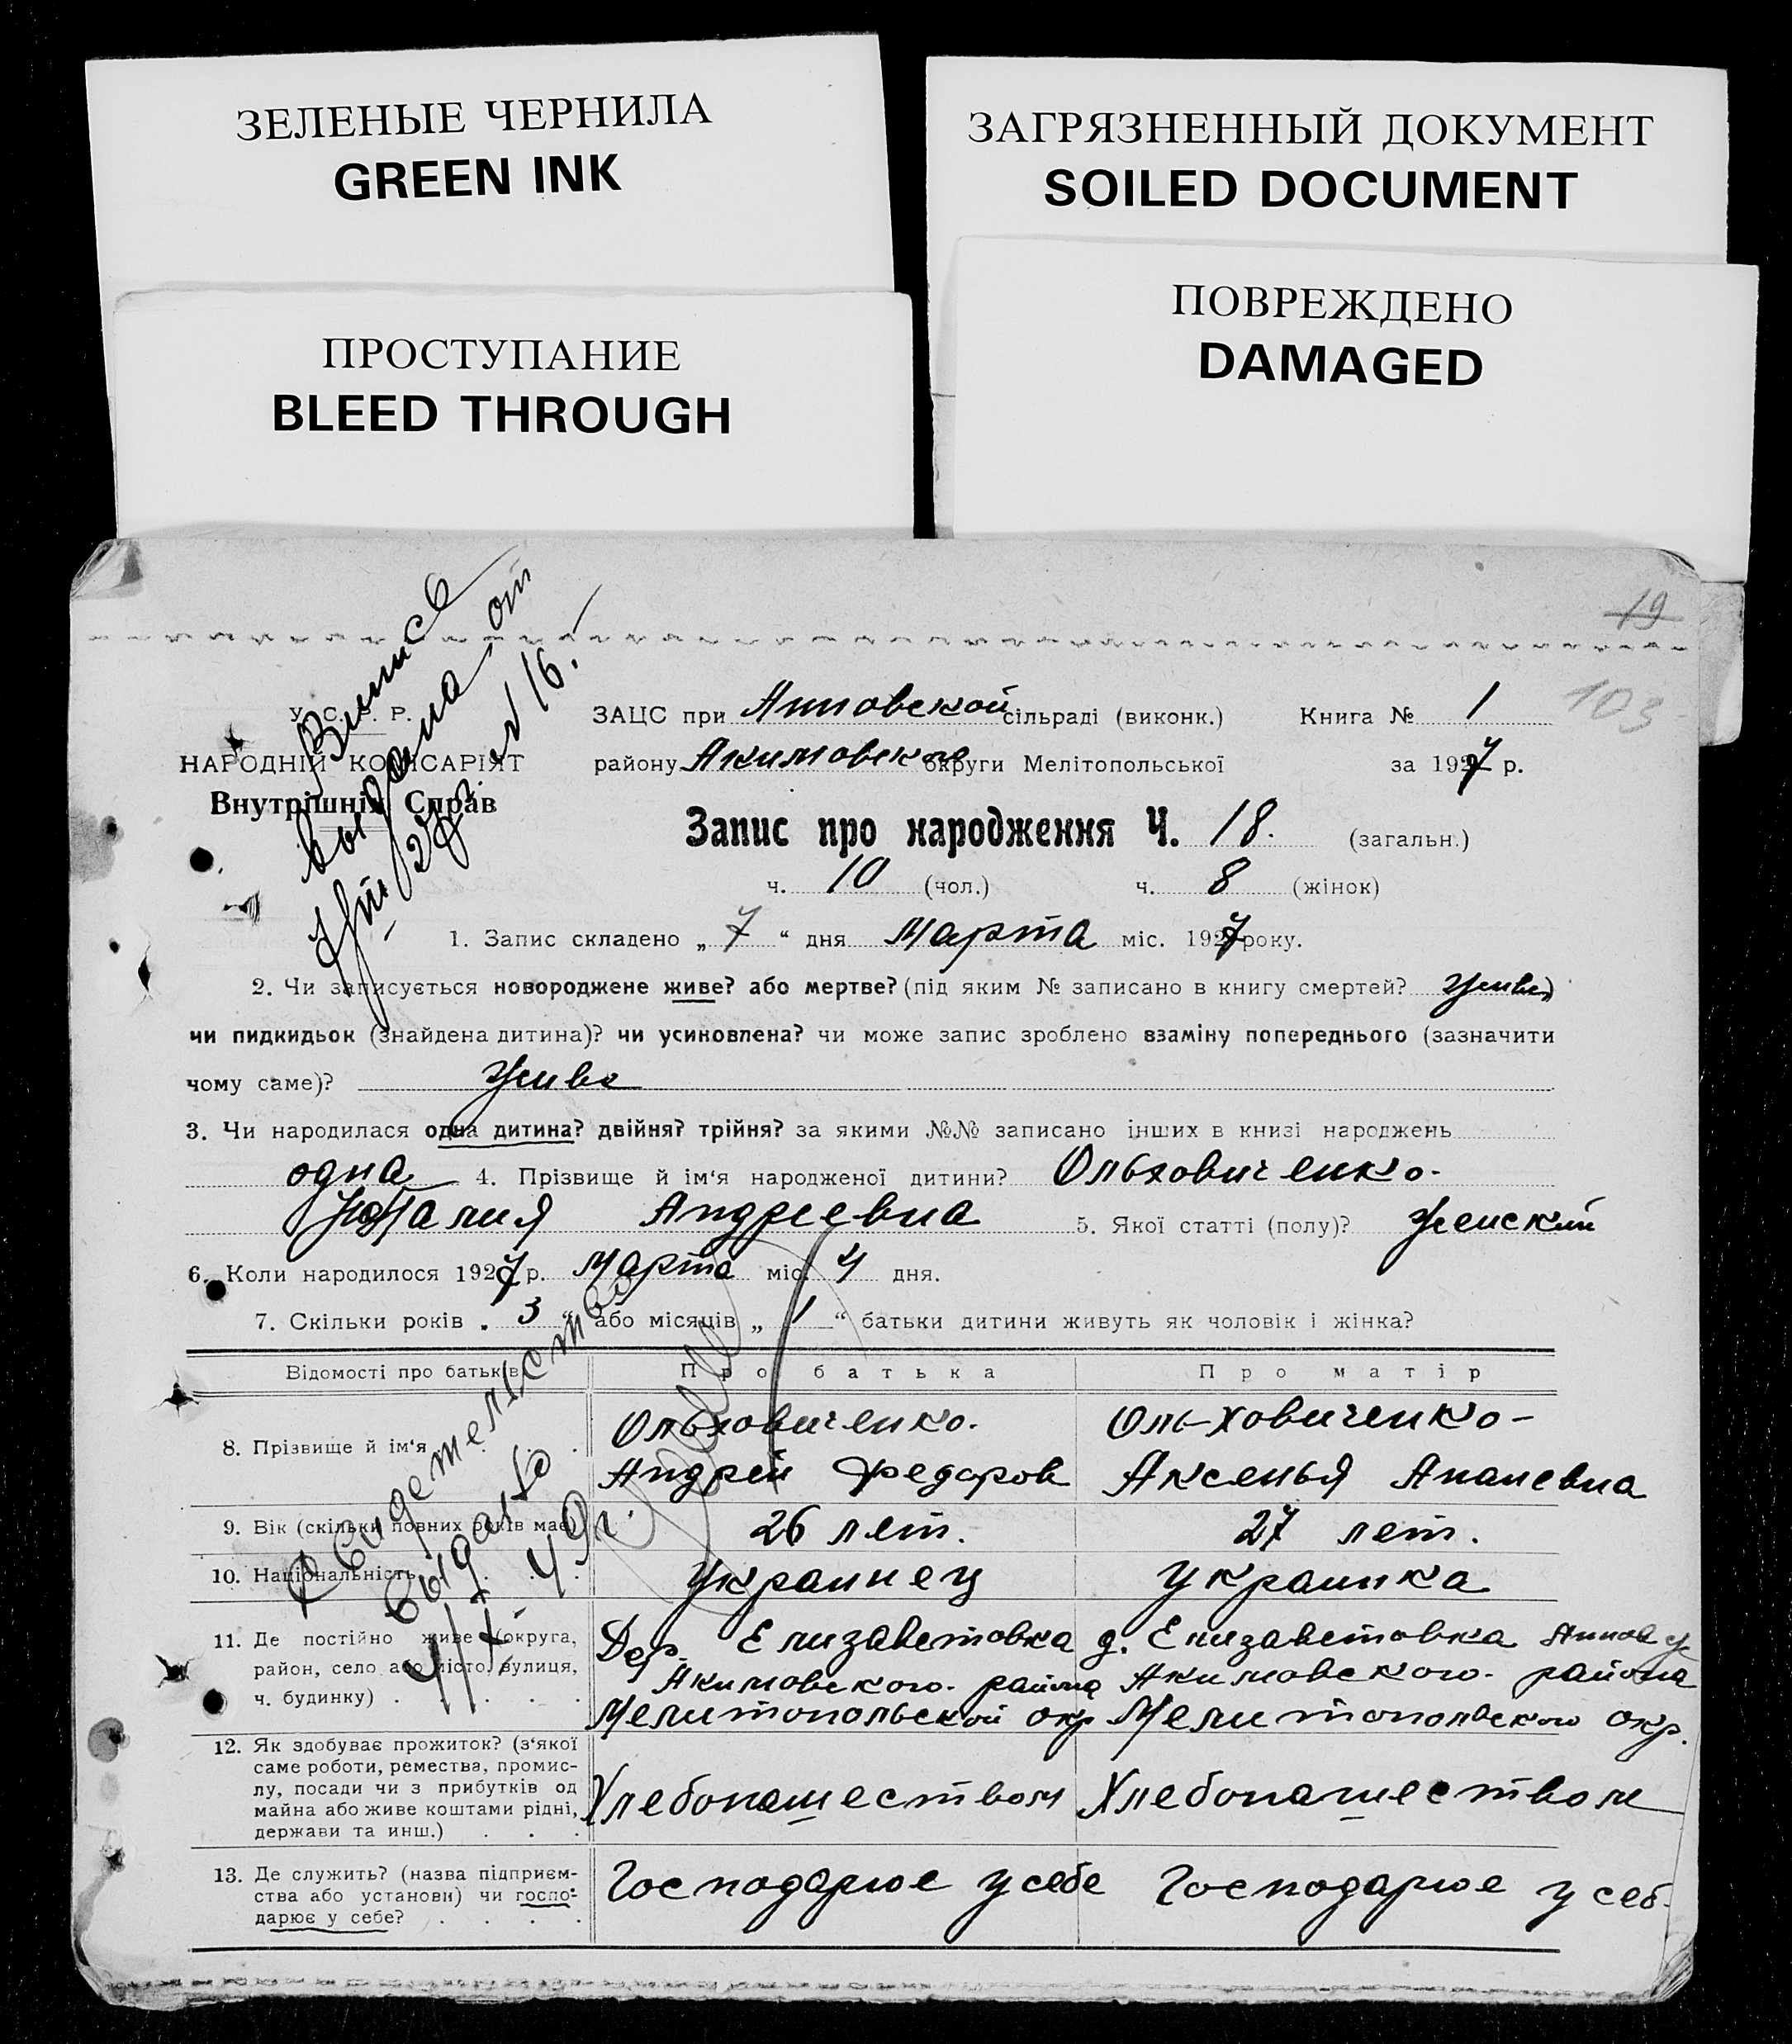 ЗЕЛЕНЫЕ ЧЕРНИЛА
GREEN INK
ЗАГРЯЗНЕННЫЙ ДОКУМЕНТ
SOILED DOCUMENT
ПРОСТУПАНИЕ
BLEED THROUGH
ПОВРЕЖДЕНО
DAMAGED
19
103
Выпись
выдана от
16.
У. С. Р. Р.
НАРОДНІЙ КОМІСАРІЯТ
Внутрішніх Справ
ЗАЦС при Анновской сільраді (виконк.) Книга № 1
району Акимовское округи Мелітопольської за 1927 р.
Запис про народження Ч. 18. (загальн.)
ч. 10 (чол.) ч. 8 (жінок)
1. Запис складено „ 7 “ дня Марта міс. 1927 року.
2. Чи записується новороджене живе? або мертве? (під яким № записано в книгу смертей? живе)
чи пидкидьок (знайдена дитина)? чи усиновлена? чи може запис зроблено взаміну попереднього (зазначити
чому саме)? живе
3. Чи народилася одна дитина? двійня? трійня? за якими №№ записано інших в книзі народжень
одна 4. Прізвище й ім‘я народженої дитини? Ольховиченко.
Наталия Андреевна 5. Якої статті (полу)? женский
6. Коли народилося 1927 р. Марта міс. 4 дня.
7. Скільки років „ 3 “ або місяців „ 1 “ батьки дитини живуть як чоловік і жінка?
Відомості про батьків Про батька Про матір
8. Прізвище й ім‘я Ольховиченко. Ольховиченко-
Андрей Федоров Аксенья Ананевна
9. Вік (скільки повних років має) 26 лет. 27 лет.
10. Національність Украинец Украинка
Свидетельство
выдано
49г.
11. Де постійно живе (округа,
район, село або місто, вулиця,
ч. будинку)
Дер. Елизаветовка
Акимовского. района
Мелитопольской окр
д. Елизаветовка
Акимовского. района
Мелитопольского окр.
12. Як здобуває прожиток? (з‘якої
саме роботи, ремества, промис-
лу, посади чи з прибутків од
майна або живе коштами рідні,
держави та инш.)
Хлебопашеством Хлебопашеством
13. Де служить? (назва підприєм-
ства або установи) чи госпо-
дарює у себе?
Господарює у себе Господарює у себ.